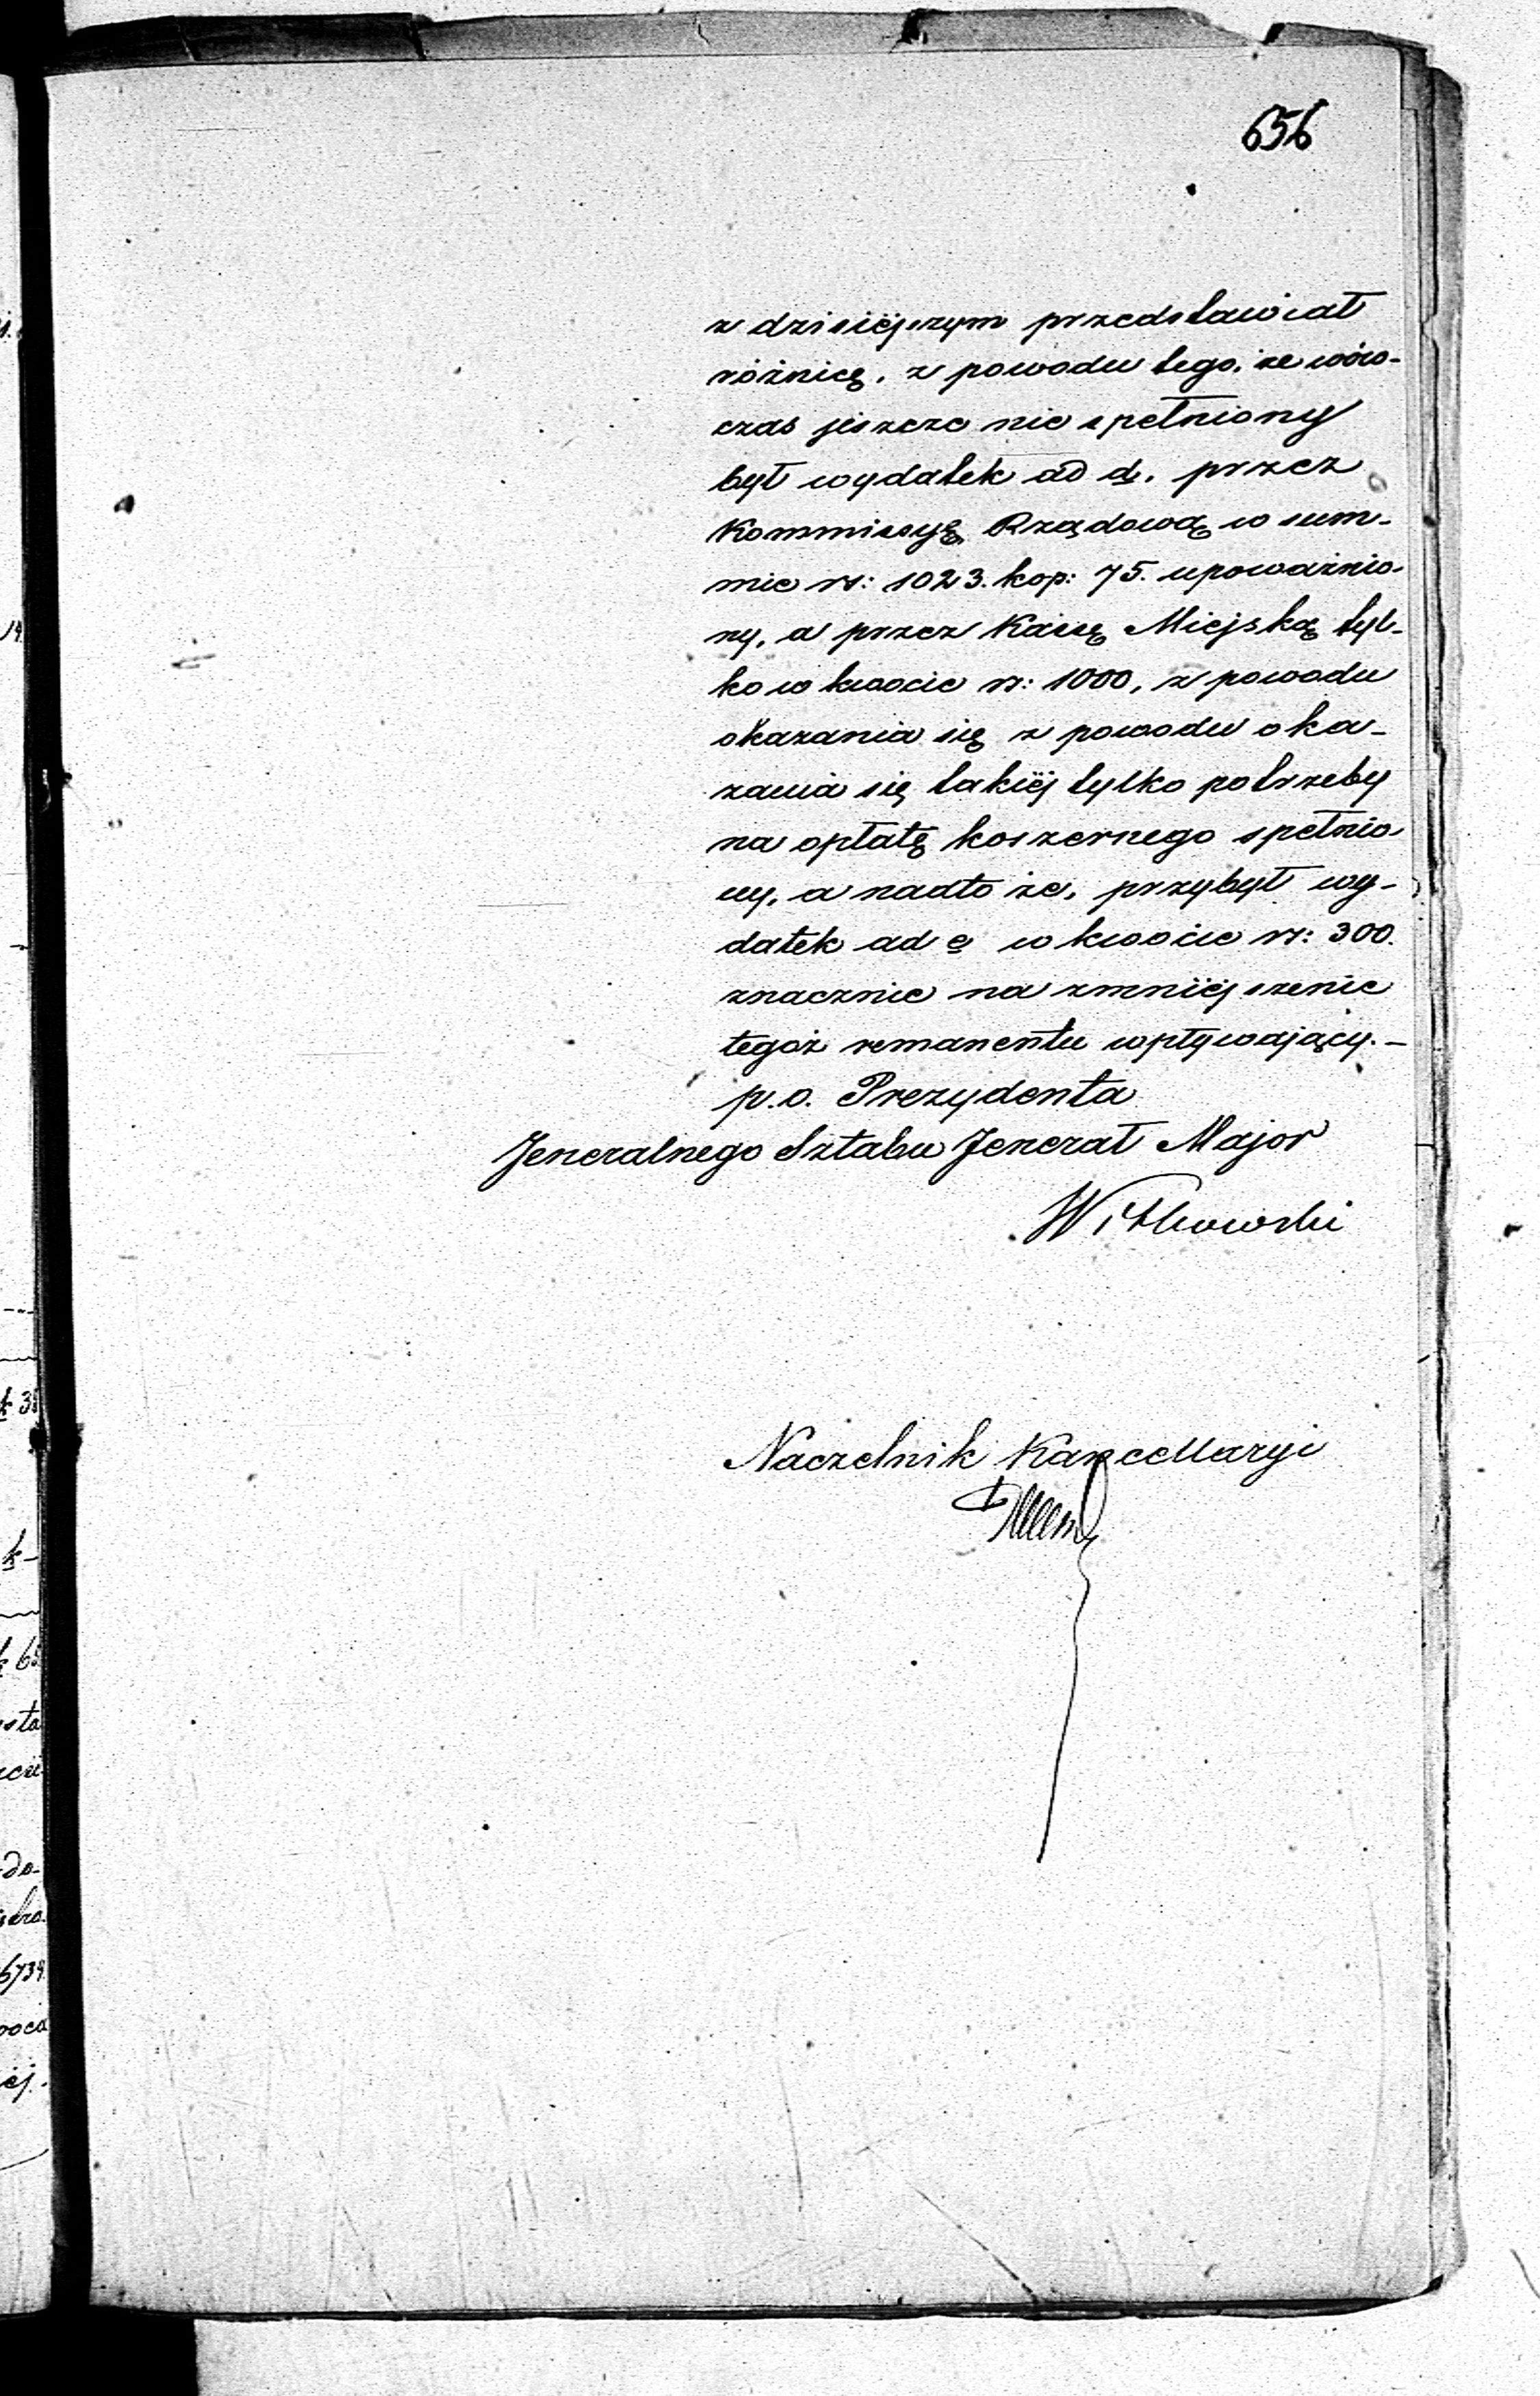 656
z dzisiéjszym przedstawiał
różnicę, z powodu tego, że wów-
czas jeszcze nie spełniony
był wydatek ad d, przez
Kommissyę Rządową w sum-
mie rs: 1023. kop: 75. upoważnio-
ny, a przez Kassę Miejską tyl-
ko w kwocie rs: 1000, z powodu
okazania się z powodu oka-
zania się takiéj tylko potrzeby
na opłatę koszernego spełnio
ny, a nadto że, przybył wy-
datek ad e w kwocie rs: 300.
znacznie na zmniéjszenie
tegoż remanentu wpływający.-
p.o. Prezydenta
Jeneralnego Sztabu Jenerał Major
Witkowski
Naczelnik Kancellaryi